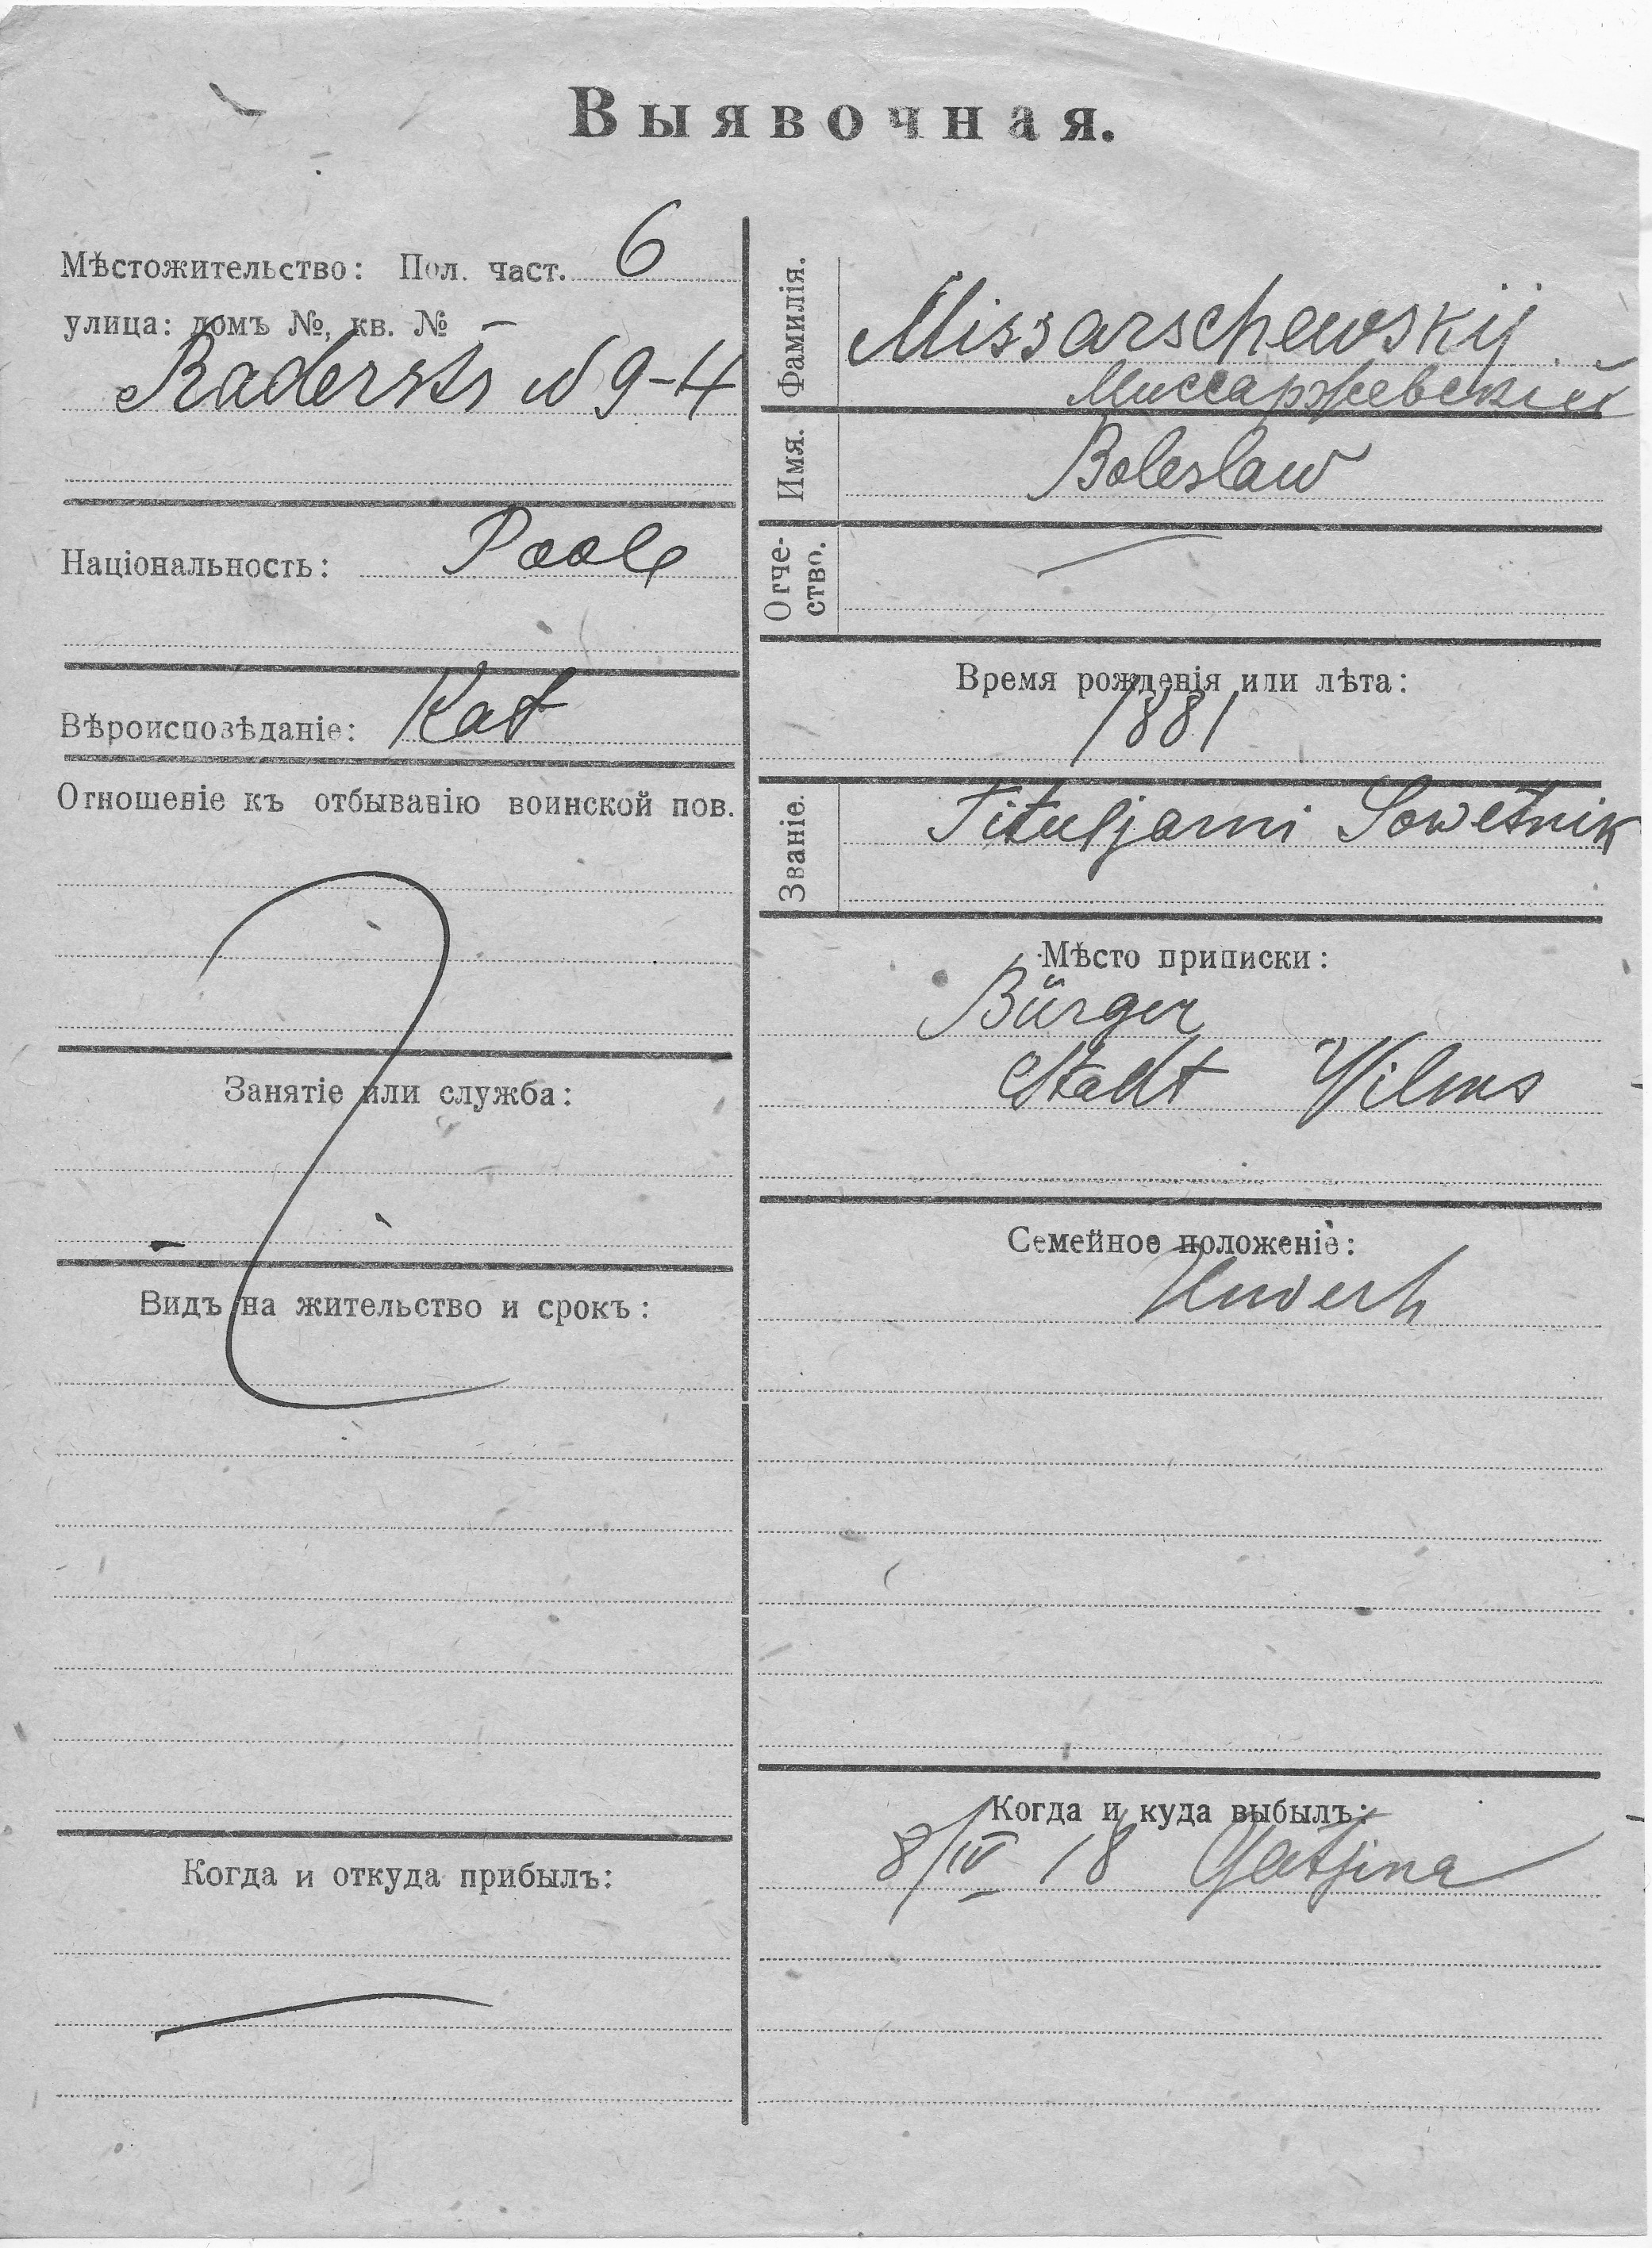 Выявочная.
Мѣстожительство: Пол. част. 6
улица: домъ №, кв. №
Raderstr N 9-4
Національность: Poole
Вѣроисповѣданіе: Kat
Отношеніе къ отбыванію воинской пов.
Занятіе или служба:
Видъ на жительство и срокъ:
Когда и откуда прибылъ:
Фамилія. Missarschewskij
Миссаржевскій
Имя. Boleslaw
Отче-
ство.
Время рожденія или лѣта:
1881
Званіе. Tituljarni Sowetnik
Мѣсто приписки:
Bürger
Stadt Wilna
Семейное положеніе:
Когда и куда выбылъ:
8/IV 18 Gatjina